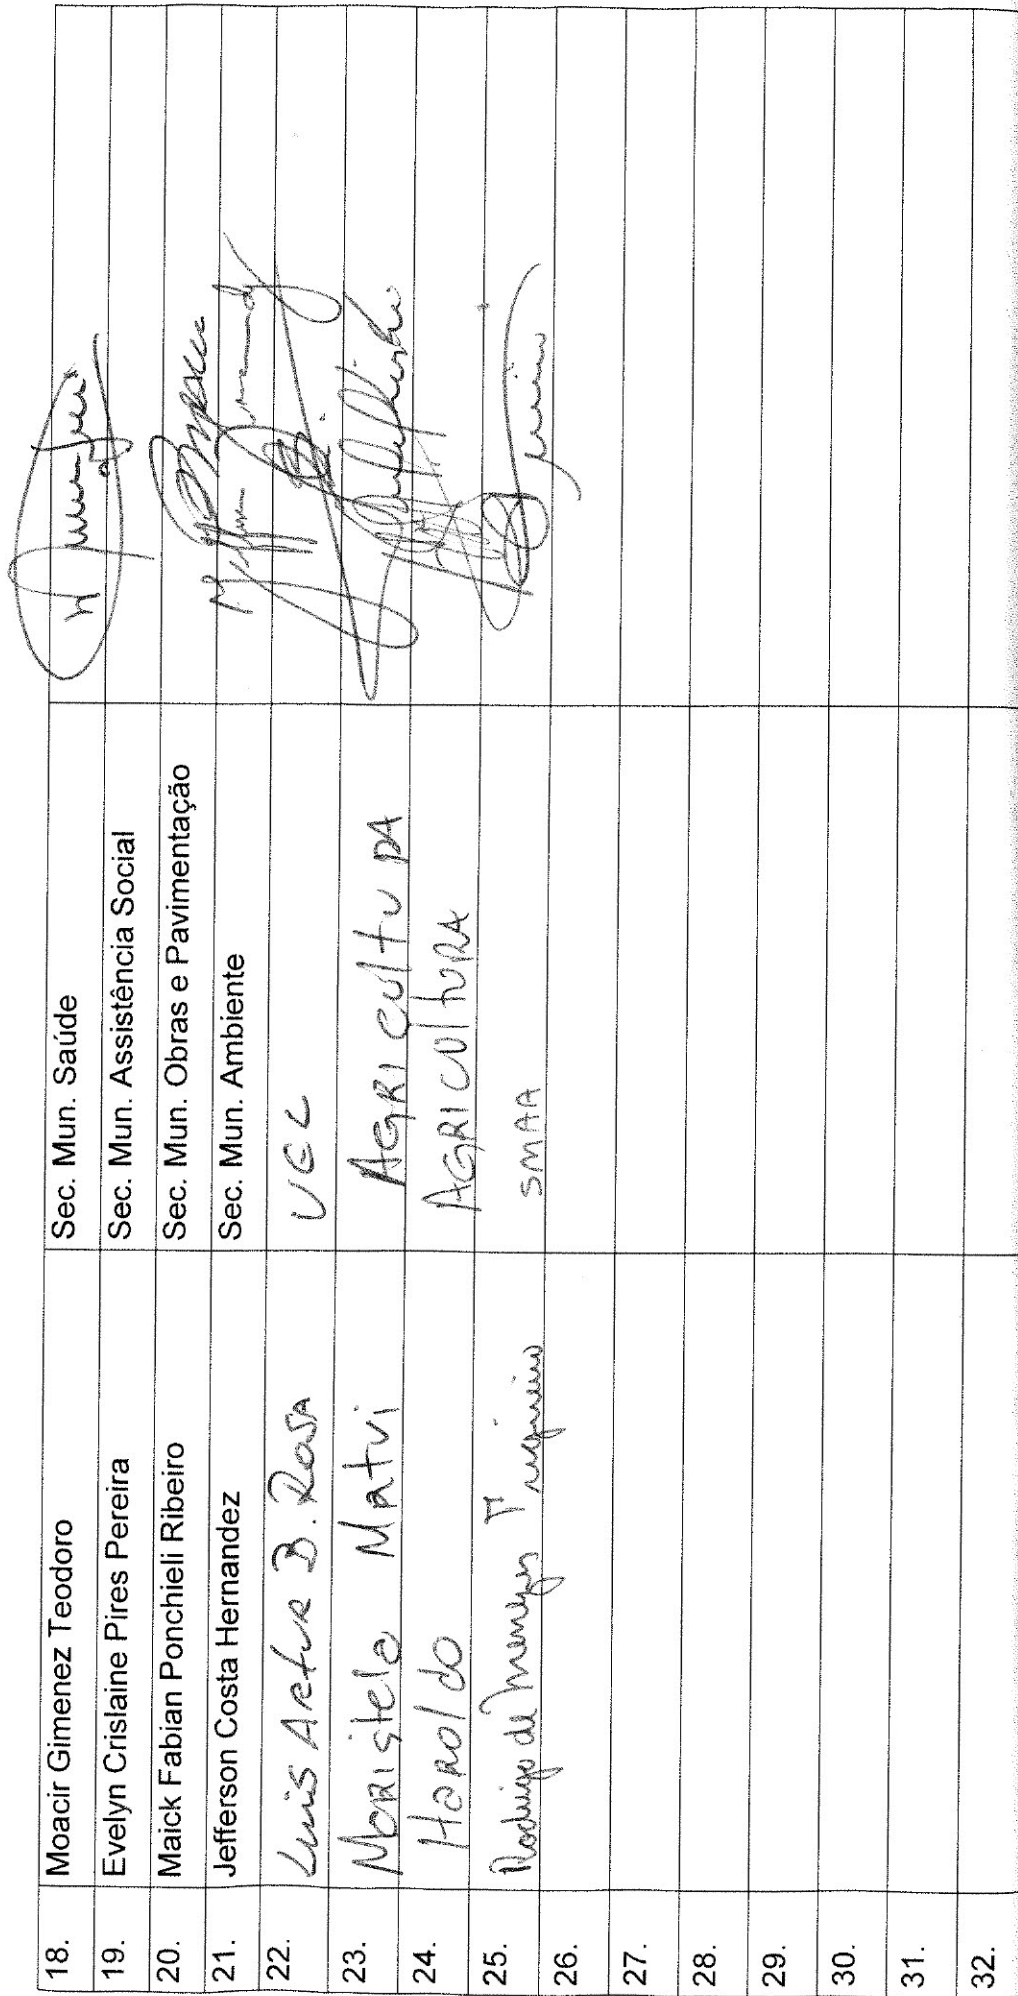 18. Moacir Gimenez Teodoro Sec. Mun. Saúde
19. Evelyn Crislaine Pires Pereira Sec. Mun. Assistência Social
20. Maick Fabian Ponchieli Ribeiro Sec. Mun. Obras e Pavimentação
21. Jefferson Costa Hernandez Sec. Mun. Ambiente
22. Luis Artur B. Rosa UEL
23. Maristela Matvi AGRICULTURA
24. Haroldo AGRICULTURA
25. Rodrigo de SMAA
26.
27.
28.
29.
30.
31.
32.